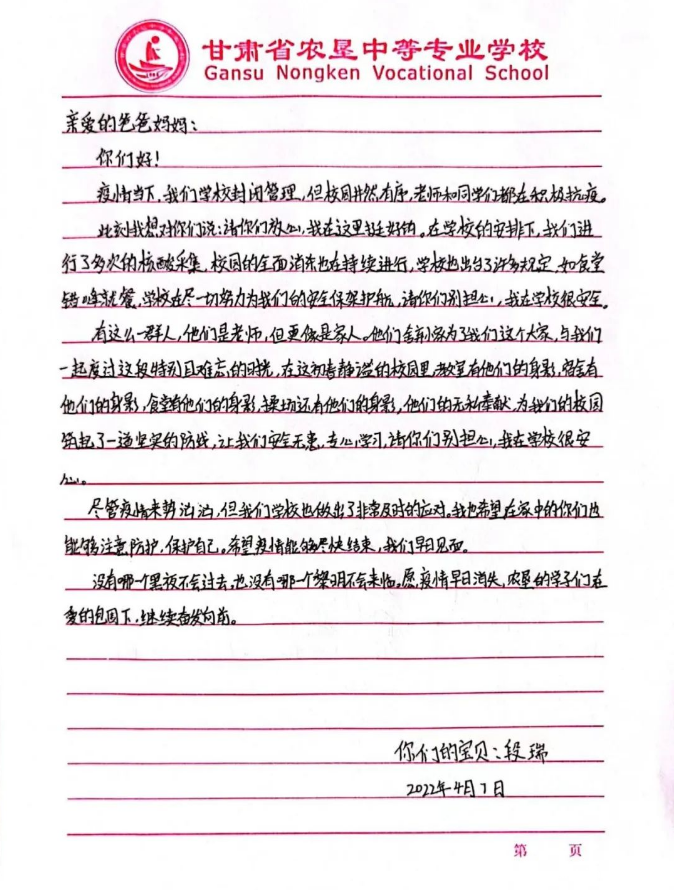 甘肃省农垦中等专业学校
Gansu Nongken Vocational School
亲爱的爸爸妈妈：
你们好！
疫情当下，我们学校封闭管理，但校园井然有序，老师和同学们都在积极抗疫。
此刻我想对你们说：请你们放心，我在这里挺好的。在学校的安排下，我们进
行了多次的核酸采集，校园的全面消杀也在持续进行，学校也出台了许多规定，如食堂
错峰就餐，学校在尽一切努力为我们的安全保驾护航，请你们别担心，我在学校很安全。
有这么一群人，他们是老师，但更像是家人。他们舍弃小家为了我们这个大家，与我们
一起度过这段特别且难忘的时光，在这初春静谧的校园里，教室有他们的身影，宿舍有
他们的身影，食堂有他们的身影，操场还有他们的身影，他们的无私奉献，为我们的校园
筑起了一道坚实的防线，让我们安全无恙，专心学习，请你们别担心，我在学校很安
心。
尽管疫情来势汹汹，但我们学校也做出了非常及时的应对。我也希望在家中的你们也
能够注意防护，保护自己。希望疫情能够尽快结束，我们早日见面。
没有哪一个黑夜不会过去，也没有哪一个黎明不会来临。愿疫情早日消失，农垦的学子们在
爱的包围下，继续奋发向前。
你们的宝贝：段瑞
2022年4月1日
第 页